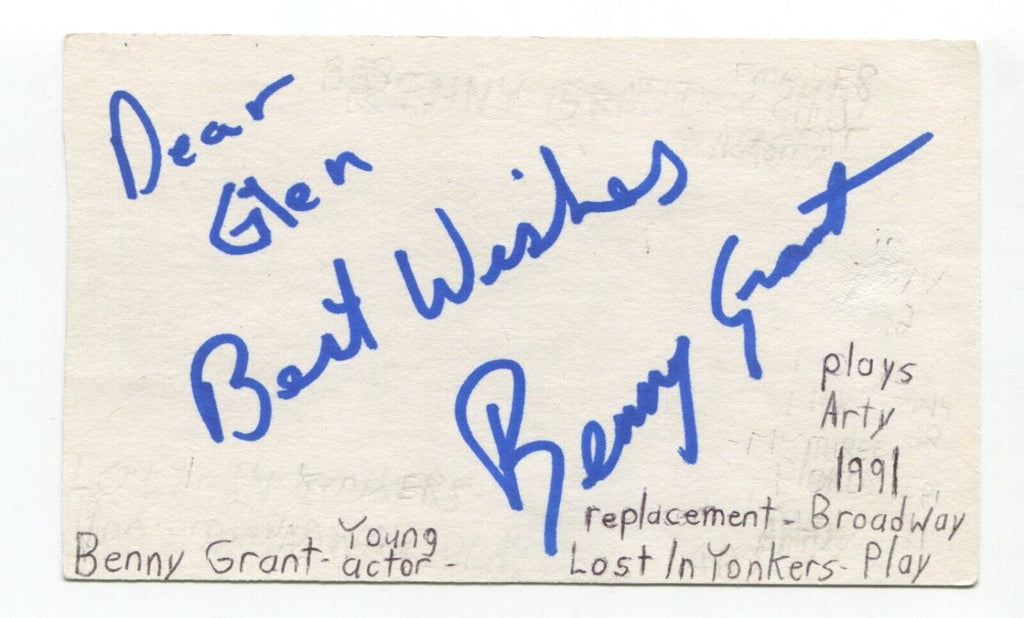 Dear
Glen
Best Wishes
Benny Grant
plays
Arty
1991
replacement - Broadway
Lost In Yonkers - Play
Benny Grant - Young actor -